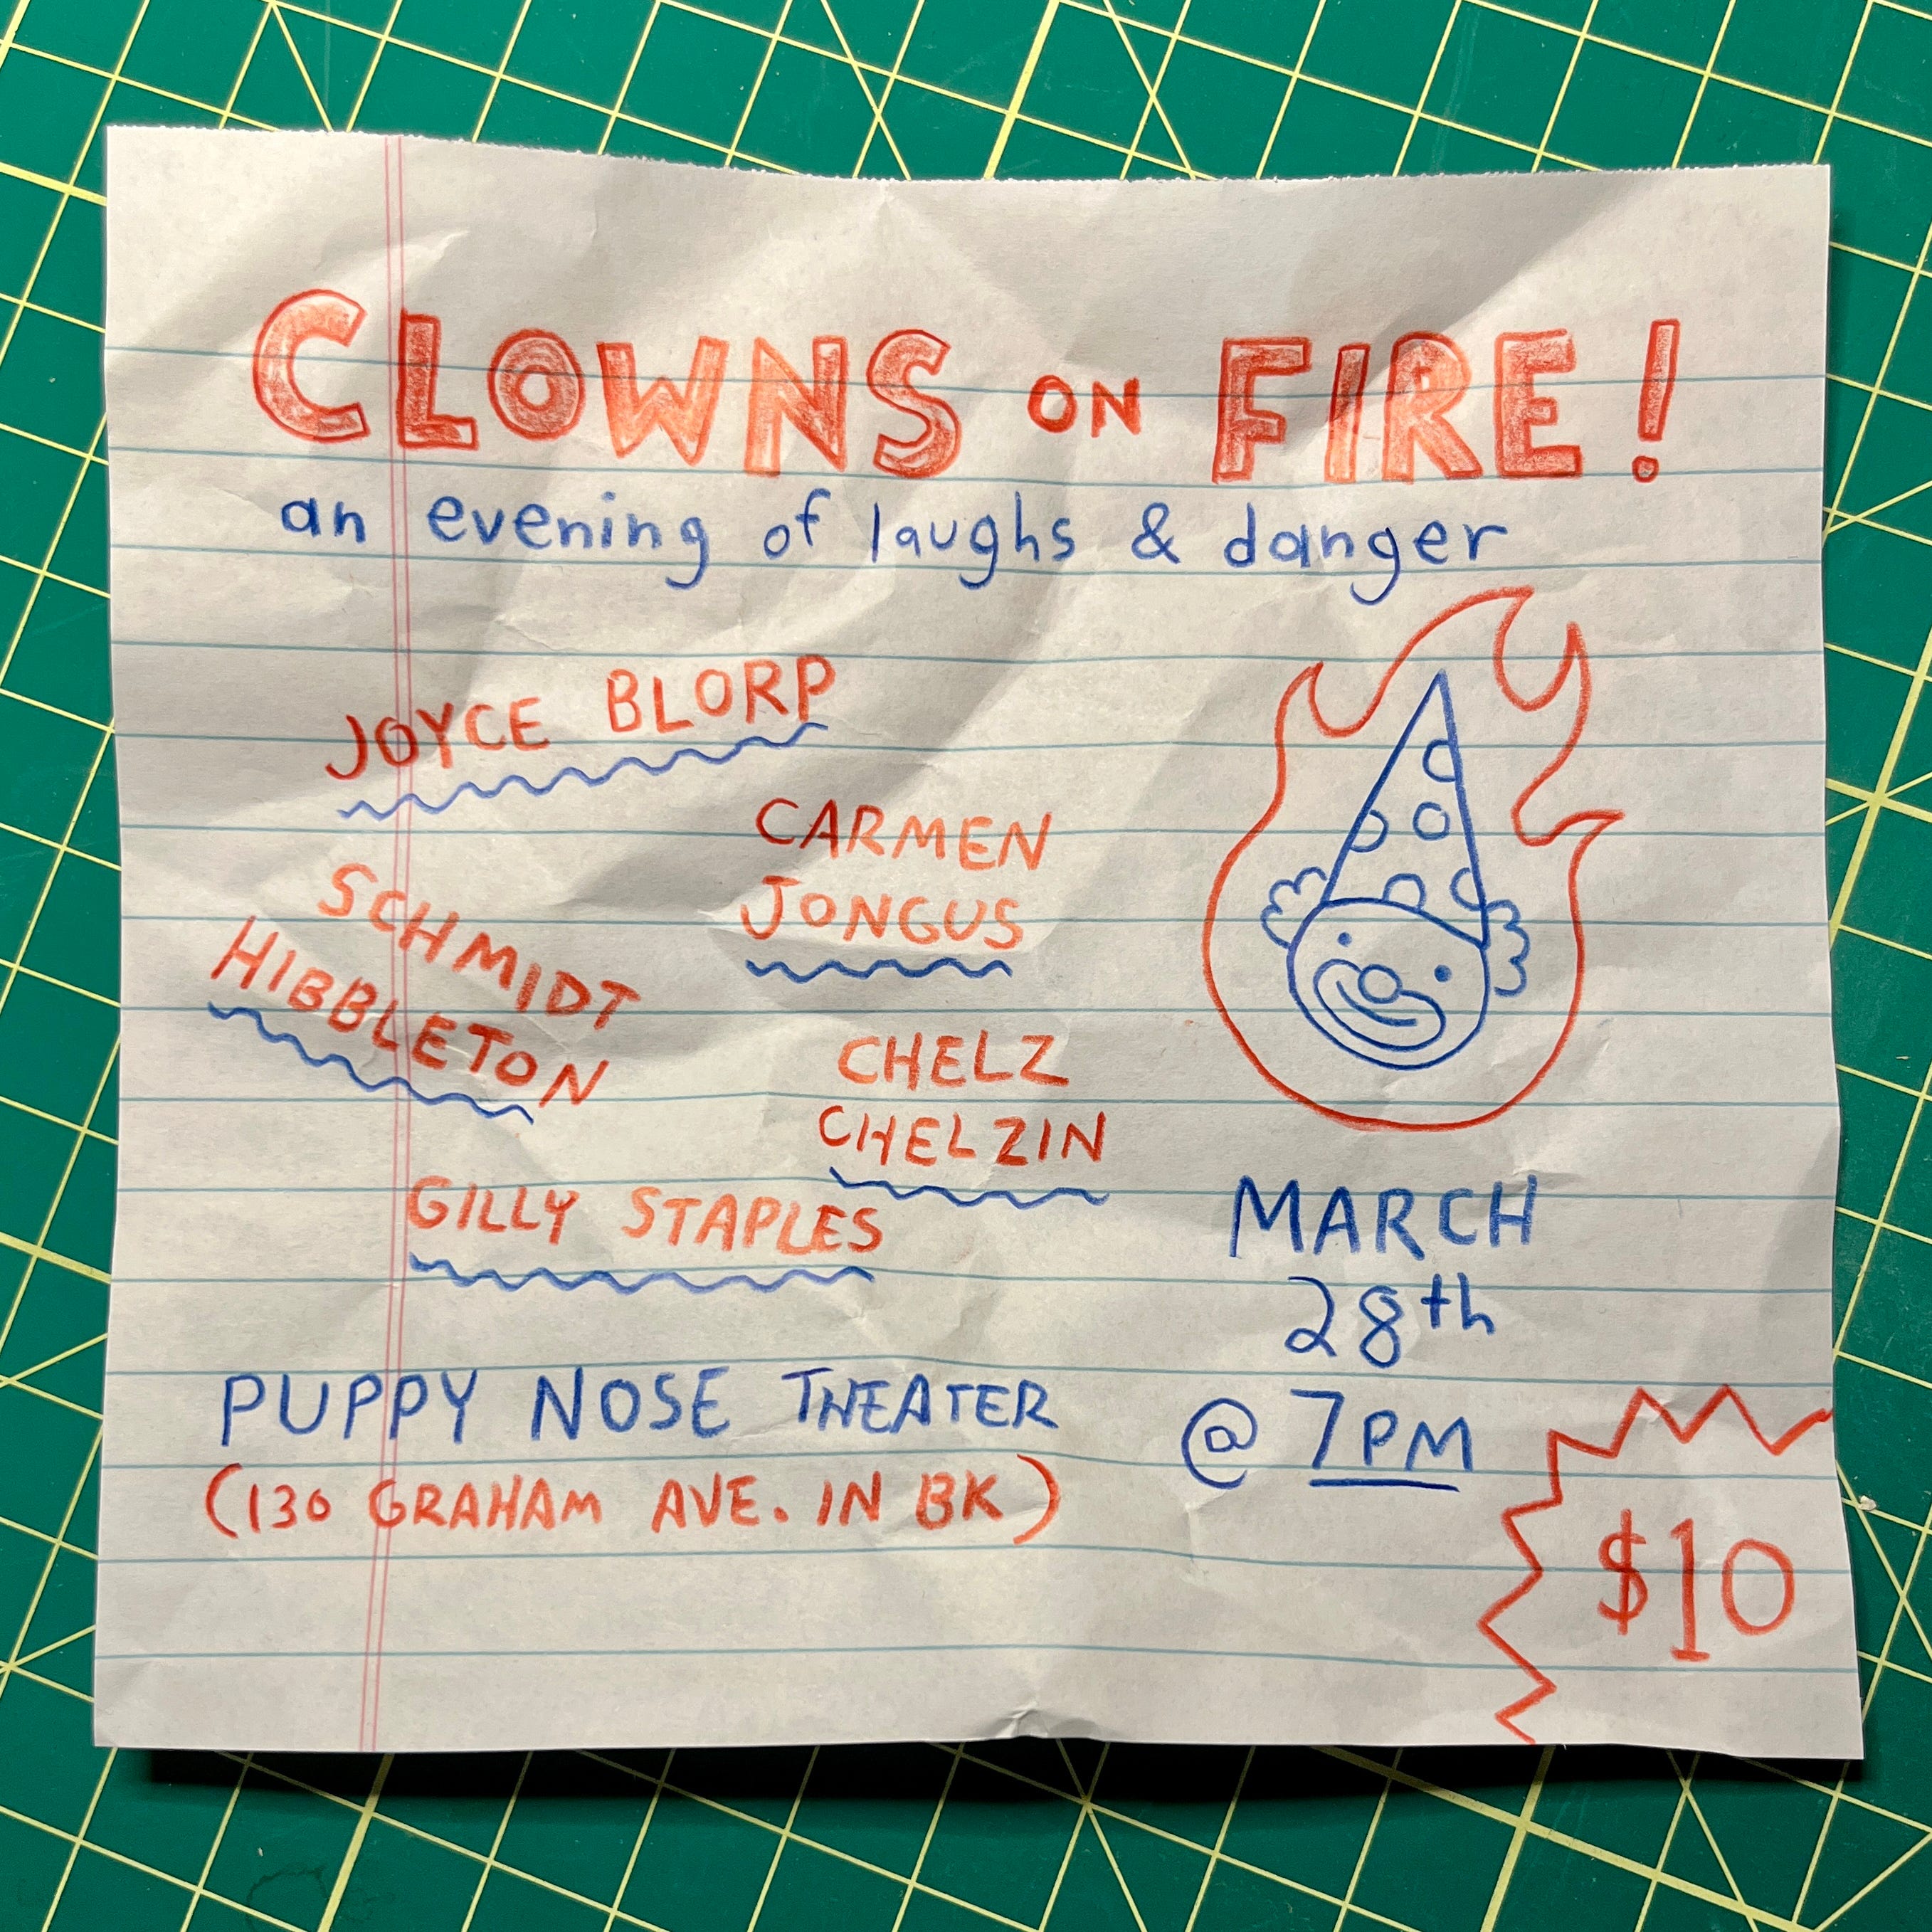 CLOWNS ON FIRE!
an evening of laughs & danger
JOYCE BLORP
CARMEN
JONGUS
SCHMIDT
HIBBLETON
CHELZ
CHELZIN
GILLY STAPLES
MARCH
28th
@ 7PM
PUPPY NOSE THEATER
(130 GRAHAM AVE. IN BK)
$10